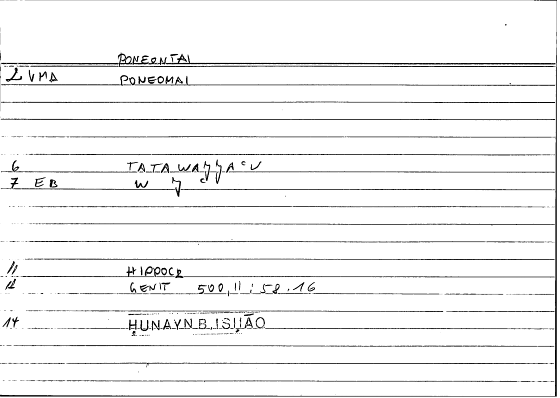 PONEONTAI
2 VMA PONEOMAI
6 TATAWAǦǦAᶜU
7 EB W Ǧ ᶜ
11 HIPPOCR
12 GENIT 500,11 : 58.16
14 ḤUNAYN B. ISḤĀQ